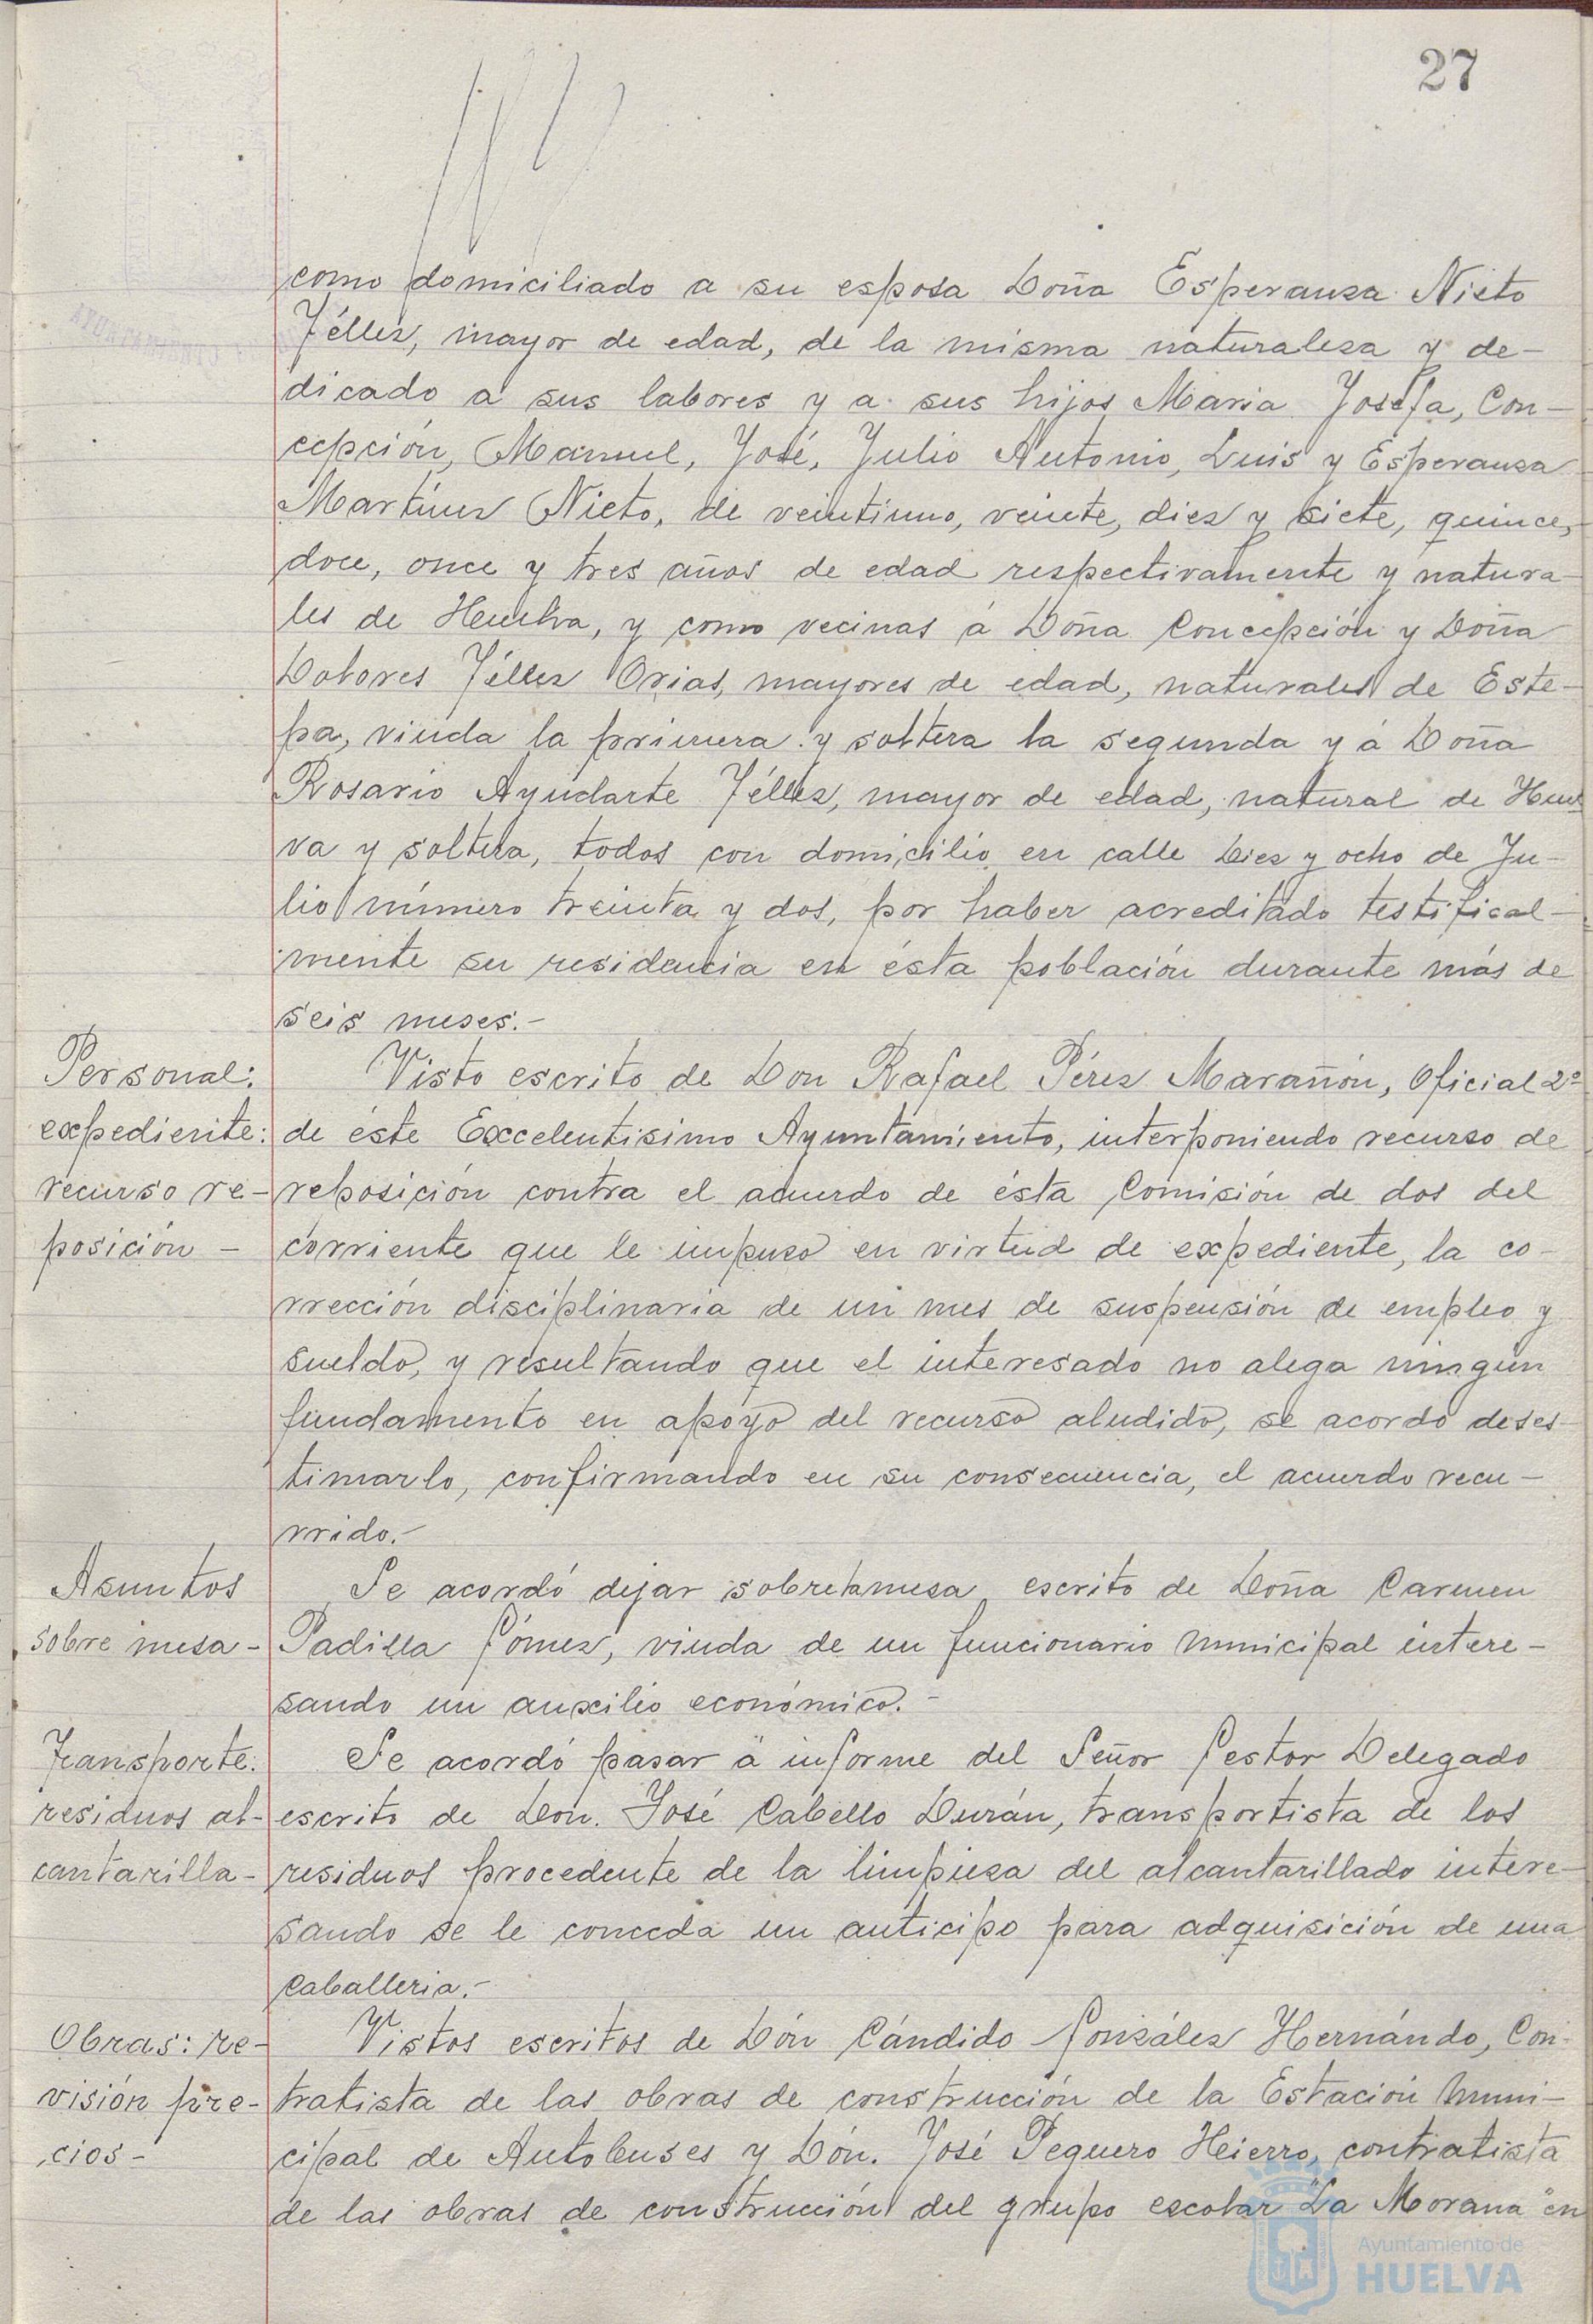 27
como domiciliado a su esposa Doña Esperanza Nieto
Téllez, mayor de edad, de la misma naturaleza y de-
dicado a sus labores y a sus hijos Maria Josefa, Con-
cepción, Manuel, José, Julio Antonio, Luis y Esperanza
Martínez Nieto, de veintiuno, veinte, diez y siete, quince,
doce, once y tres años de edad respectivamente y natura-
les de Huelva, y como vecinas á Doña Concepción y Doña
Dolores Téllez Orias, mayores de edad, naturales de Este-
pa, viuda la primera y soltera la segunda y á Doña
Rosario Ayudarte Téllez, mayor de edad, natural de Huel
va y soltera, todos con domicilio en calle Diez y ocho de Ju-
lio número treinta y dos, por haber acreditado testifical-
mente su residencia en ésta población durante más de
seis meses.-
Personal:
expediente:
recurso re-
posición -
Visto escrito de Don Rafael Pérez Marañón, Oficial 2º
de éste Excelentisimo Ayuntamiento, interponiendo recurso de
reposición contra el acuerdo de ésta Comisión de dos del
corriente que le impuso en virtud de expediente, la co-
rrección disciplinaria de un mes de suspensión de empleo y
sueldo, y resultando que el interesado no alega ningún
fundamento en apoyo del recurso aludido, se acordó deses-
timarlo, confirmando en su consecuencia, el acuerdo recu-
rrido.-
Asuntos
sobre mesa -
Se acordó dejar sobre la mesa escrito de Doña Carmen
Padilla Gómez, viuda de un funcionario municipal intere-
sando un auxilio económico.-
Transporte:
residuos al-
cantarilla-
Se acordó pasar á informe del Señor Gestor Delegado
escrito de Don. José Cabello Durán, transportista de los
residuos procedente de la limpieza del alcantarillado intere-
sando se le conceda un anticipo para adquisición de una
caballeria.-
Obras: re-
visión pre-
cios-
Vistos escritos de Dón Cándido González Hernándo, Con-
tratista de las obras de construcción de la Estación Muni-
cipal de Autobuses y Dón. José Peguero Hierro, contratista
de las obras de construcción del grupo escolar "La Morana" en
Ayuntamiento de
HUELVA